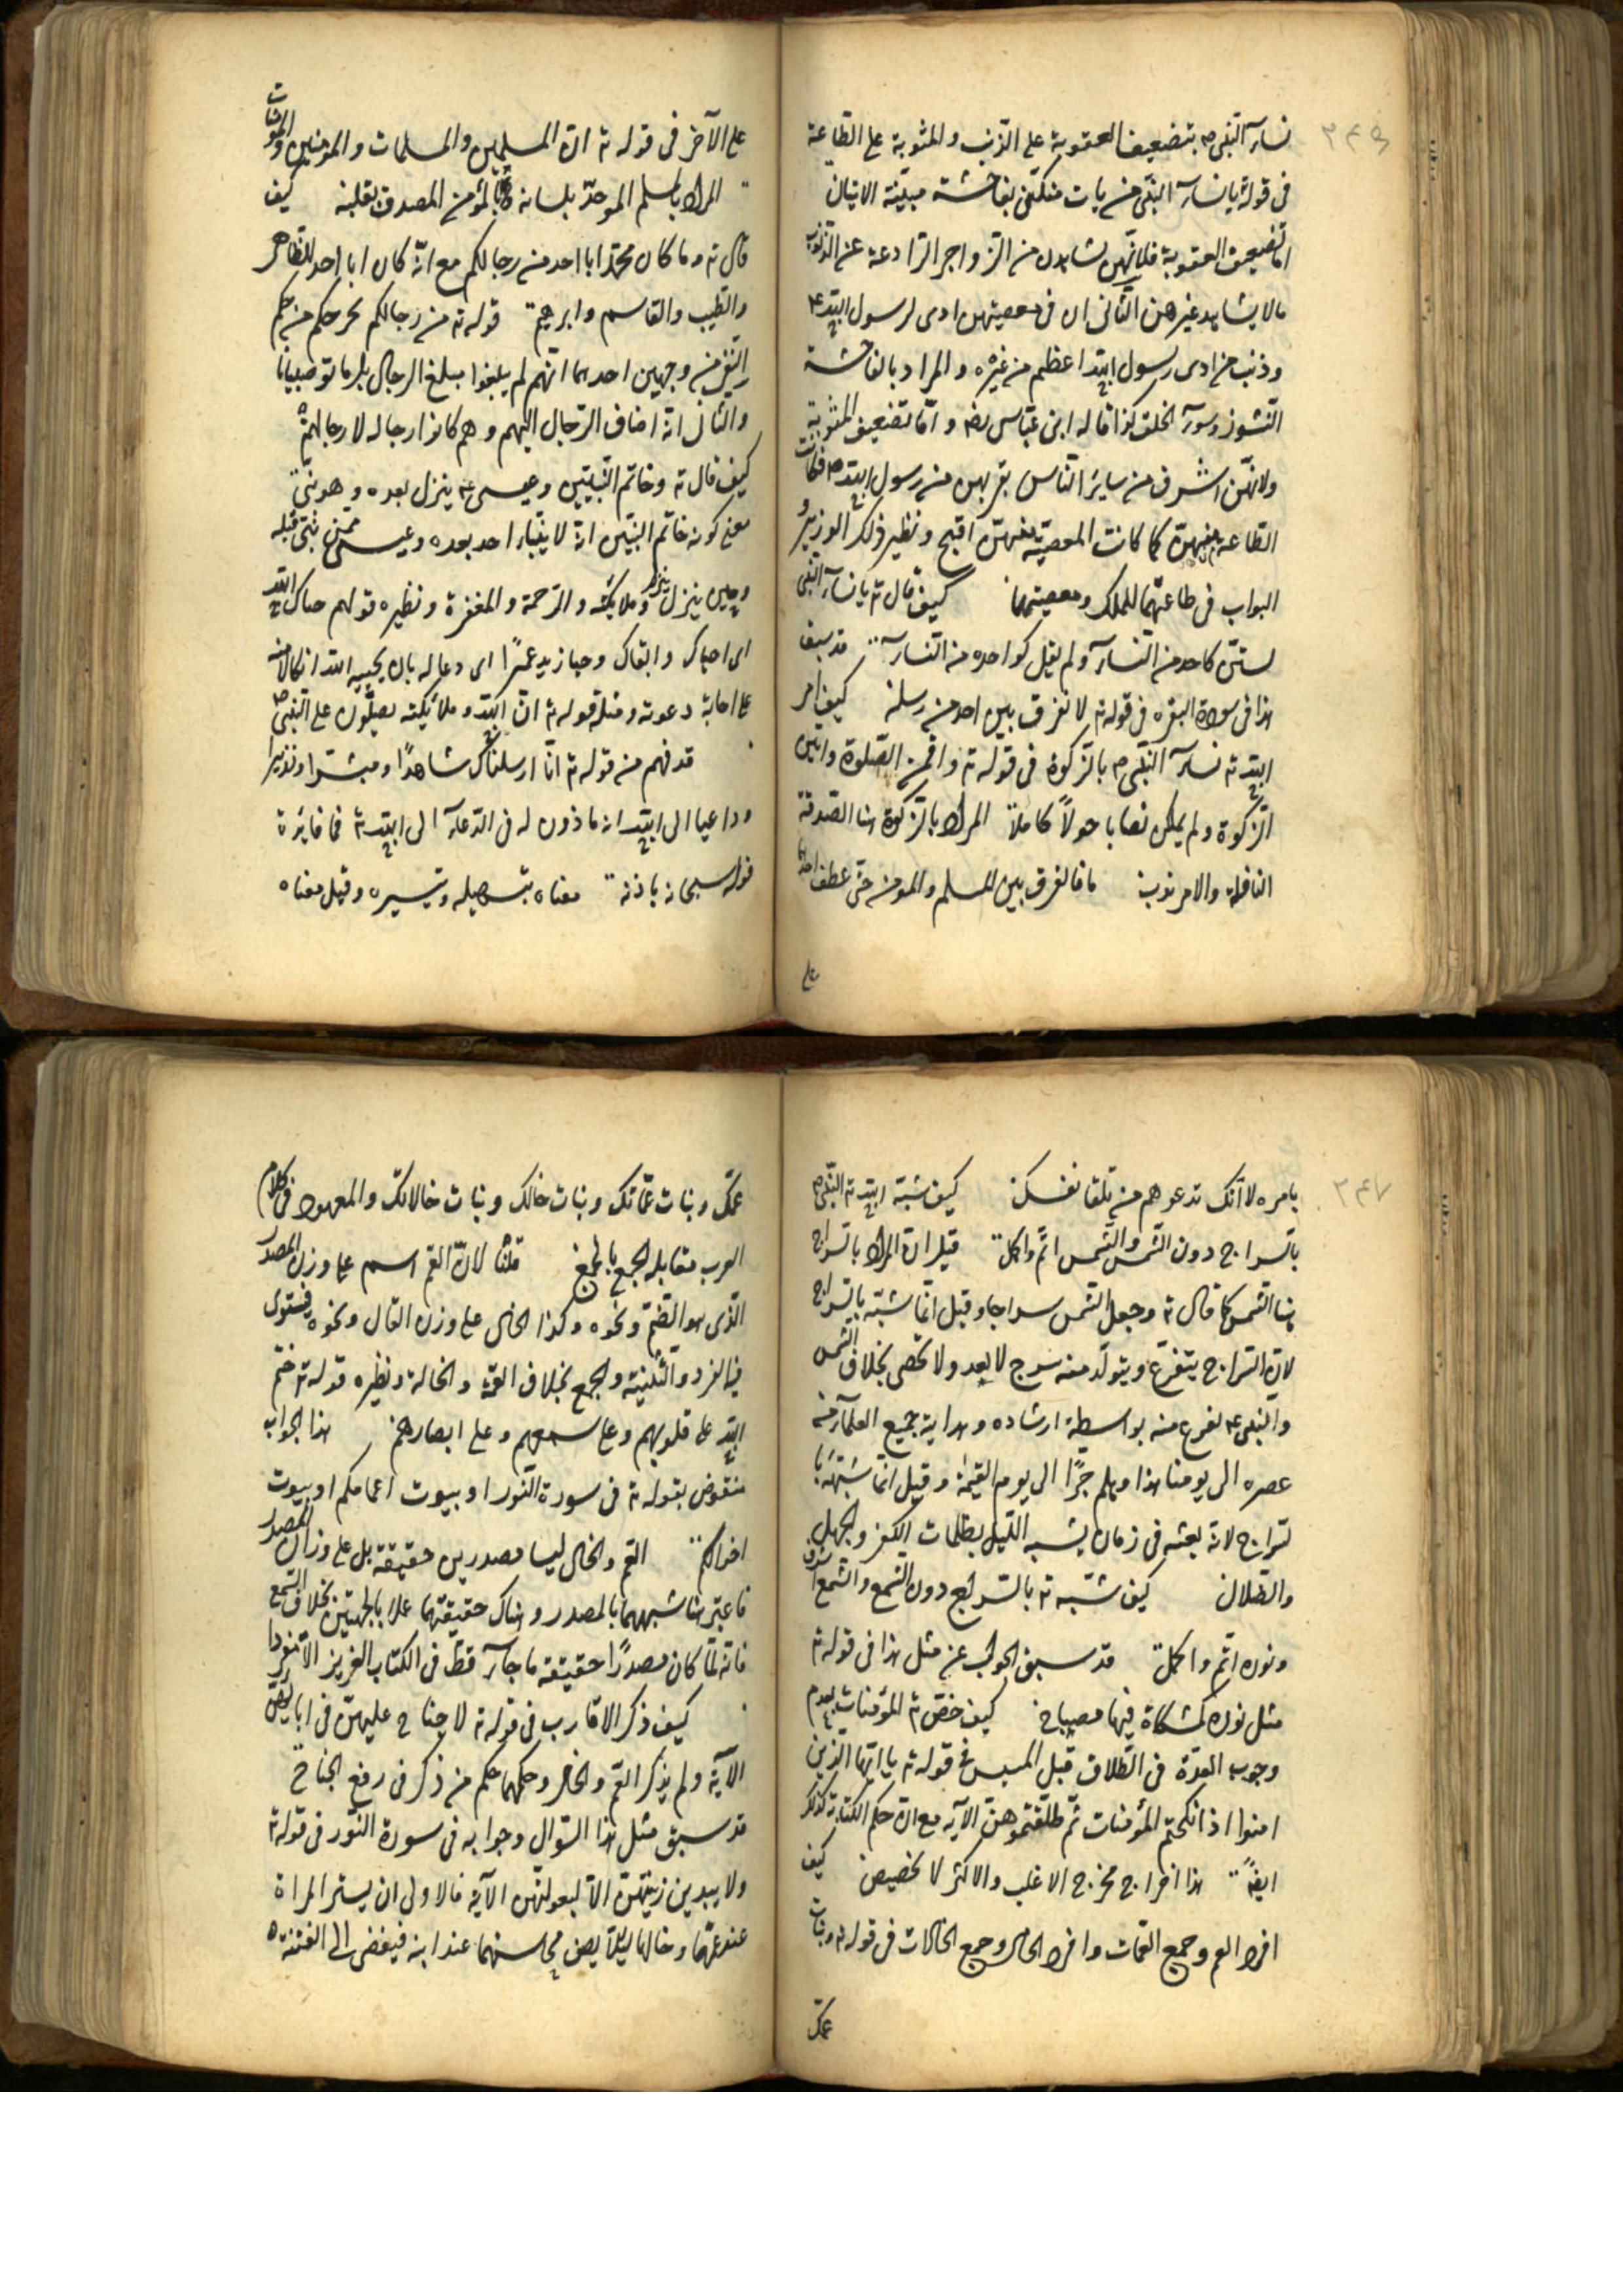 ٢٤٦
نسآء النبى ص بتضعيف العقوبة على الذنب والمثوبة على الطاعة
فى قوله يا نسآء النبى من يات منكنّ بفاحشة مبيّنة الايتان
امّا تضعيف العقوبة فلانّهن يشاهدن من الزواجر الرّادعة عن الذنوب
مالا يشاهد غيرهن الثانى ان فى معصيتهن اذى لرسول الله ع
وذنب من اذى رسول الله اعظم من غيره والمراد بالفاحشة
النشوز وسوء الخلق كذا قاله ابن عبّاس رضه وامّا تضعيف المثوبة
ولانّهنّ اشرف من ساير النّاس بقربهن من رسول الله ص فكانت
الطاعة منهنّ كما كانت المعصيّة منهنّ اقبح ونظير ذلك الوزير و
البواب فى طاعتهما للملك ومعصيتهما كيف قال ته يا نسآء النبى
لستنّ كاحد من النسآء ولم يقل كواحدة من النسآء قد سبق
هذا فى سورة البقره فى قوله ته لا نفرق بين احد من رسله كيف امر
الله ته نسآء النبى ص بالزكوة فى قوله ته واقمن الصّلوة واتين
الزكوة ولم يملكن نصابا حولًا كاملًا المراد بالزكوة هنا الصدقة
النافلة والامر ندب ما الفرق بين المسلم والمومن حتى عطف احدهما
على
على الآخر فى قوله ته انّ المسلمين والمسلمات والمومنين والمومنات
المراد بالمسلم الموحّد بلسانه وبالمؤمن المصدق بقلبه كيف
قال ته وما كان محمّد ابا احد من رجالكم مع انّه كان ابا احد للطّاهر
والطّيب والقاسم وابرهيم قوله ته من رجالكم مخرجكم من حكم
النفى من وجهين احدهما انّهم لم يبلغوا مبلغ الرجال بل ماتو صبيانا
والثانى انه اضاف الرّجال اليهم وهم كانوا رجاله لا رجالهم
كيف قال ته وخاتم النّبيّين وعيسى ع ينزل بعده وهو نبىّ
معنى كونه خاتم النبيّين انه لا ينبّأ احد بعده وعيسى ممّن نبّى قبله
وحين ينزل ينزل وملايكته والرّحمة والمغفرة ونظيره قولهم حياك الله
اى احياك وابقاك وحيا زيد عمرًا اى دعا له بان يحييه الله اتكالا منه
على اجابة دعوته ومثله قوله ته انّ الله وملائكته يصلّون على النّبىّ ص
قد فهم من قوله ته انّا ارسلناك شاهدًا ومبشرا ونذيرا
وداعيا الى الله انه ماذون له فى الدّعآء الى الله ته فما فايدة
قوله سبحانه باذنه معناه بتسهيله وتيسيره وقيل معناه
٢٤٧
بامره لا انّك تدعوهم من تلقا نفسك كيف شبّه الله ته النّبى ص
بالسراج دون الشمس والشمس اتمّ واكمل قيل انّ المراد بالسراج
هنا الشمس كما قال ته وجعل الشمس سراجا وقيل انّما شبّه بالسراج
لانّ السّراج يتفرّع ويتولّد منه سرج لا يعد ولا تحصى بخلاف الشمس
والنبى ع تفرع منه بواسطة ارشاده وهداية جميع العلمآء من
عصره الى يومنا هذا وهلم جرّا الى يوم القيمة وقيل انّما شبّهه با
لسراج لانه بعثه فى زمان يشبه اللّيل بظلمات الكفر والجهل
والضلال كيف شبّه ته بالسّراج دون الشمع والشمع اشرف
ونوره اتّم واكمل قد سبق الجواب عن مثل هذا فى قوله ته
مثل نوره كمشكاة فيها مصباح كيف خصّ ته المؤمنات بعدم
وجوب العدّة فى الطّلاق قبل المسيس فى قوله ته يا ايّها الذين
امنوا اذا نكحتم المؤمنات ثمّ طلّقتموهنّ الآيه مع انّ حكم الكتابة كذلك
ايضًا هذا اخراج مخرج الاغلب والاكثر لا تخصيص كيف
افرد العم وجمع العّمات وافرد الخال وجمع الخالات فى قوله ته وبنات
عمّك
عمّك وبنات عمّاتك وبنات خالك وبنات خالاتك والمعهود فى كلام
العرب مقابلة الجمع بالجمع قلنا لانّ العّم اسم على وزن المصدر
الّذى هو الضّم ونحوه وكذا الخال على وزن القال ونحوه فيستوى
فيه المفرد والتّثنية والجمع بخلاف العمّة والخالة ونظيره قوله ته ختم
الله على قلوبهم وعلى سمعهم وعلى ابصارهم هذا الجواب
منقوض بقوله ته فى سورة النّور او بيوت اعمامكم او بيوت
اخوالكم العّم والخال ليسا مصدرين حقيقة بل على وزان المصدر
فاعتبر هنا شبههما بالمصدر وهناك حقيقتهما عملا بالجهتين بخلاف السّمع
فانه لمّا كان مصدرًا حقيقة ما جآء قط فى الكتاب العزيز الّا مفردا
كيف ذكر الاقارب فى قوله ته لا جناح عليهنّ فى ابايهنّ
الآية ولم يذكر العّم والخال وحكمهما حكم من ذكر فى رفع الجناح
قد سبق مثل هذا السّؤال وجوابه فى سورة النّور فى قوله ته
ولا يبدين زينتهنّ الّا لبعولتهن الآية فالاولى ان يستر المراة
عند عمّها وخالها ليلّا يصف محاسنهما عند ابنه فيفضى الى الفتنة